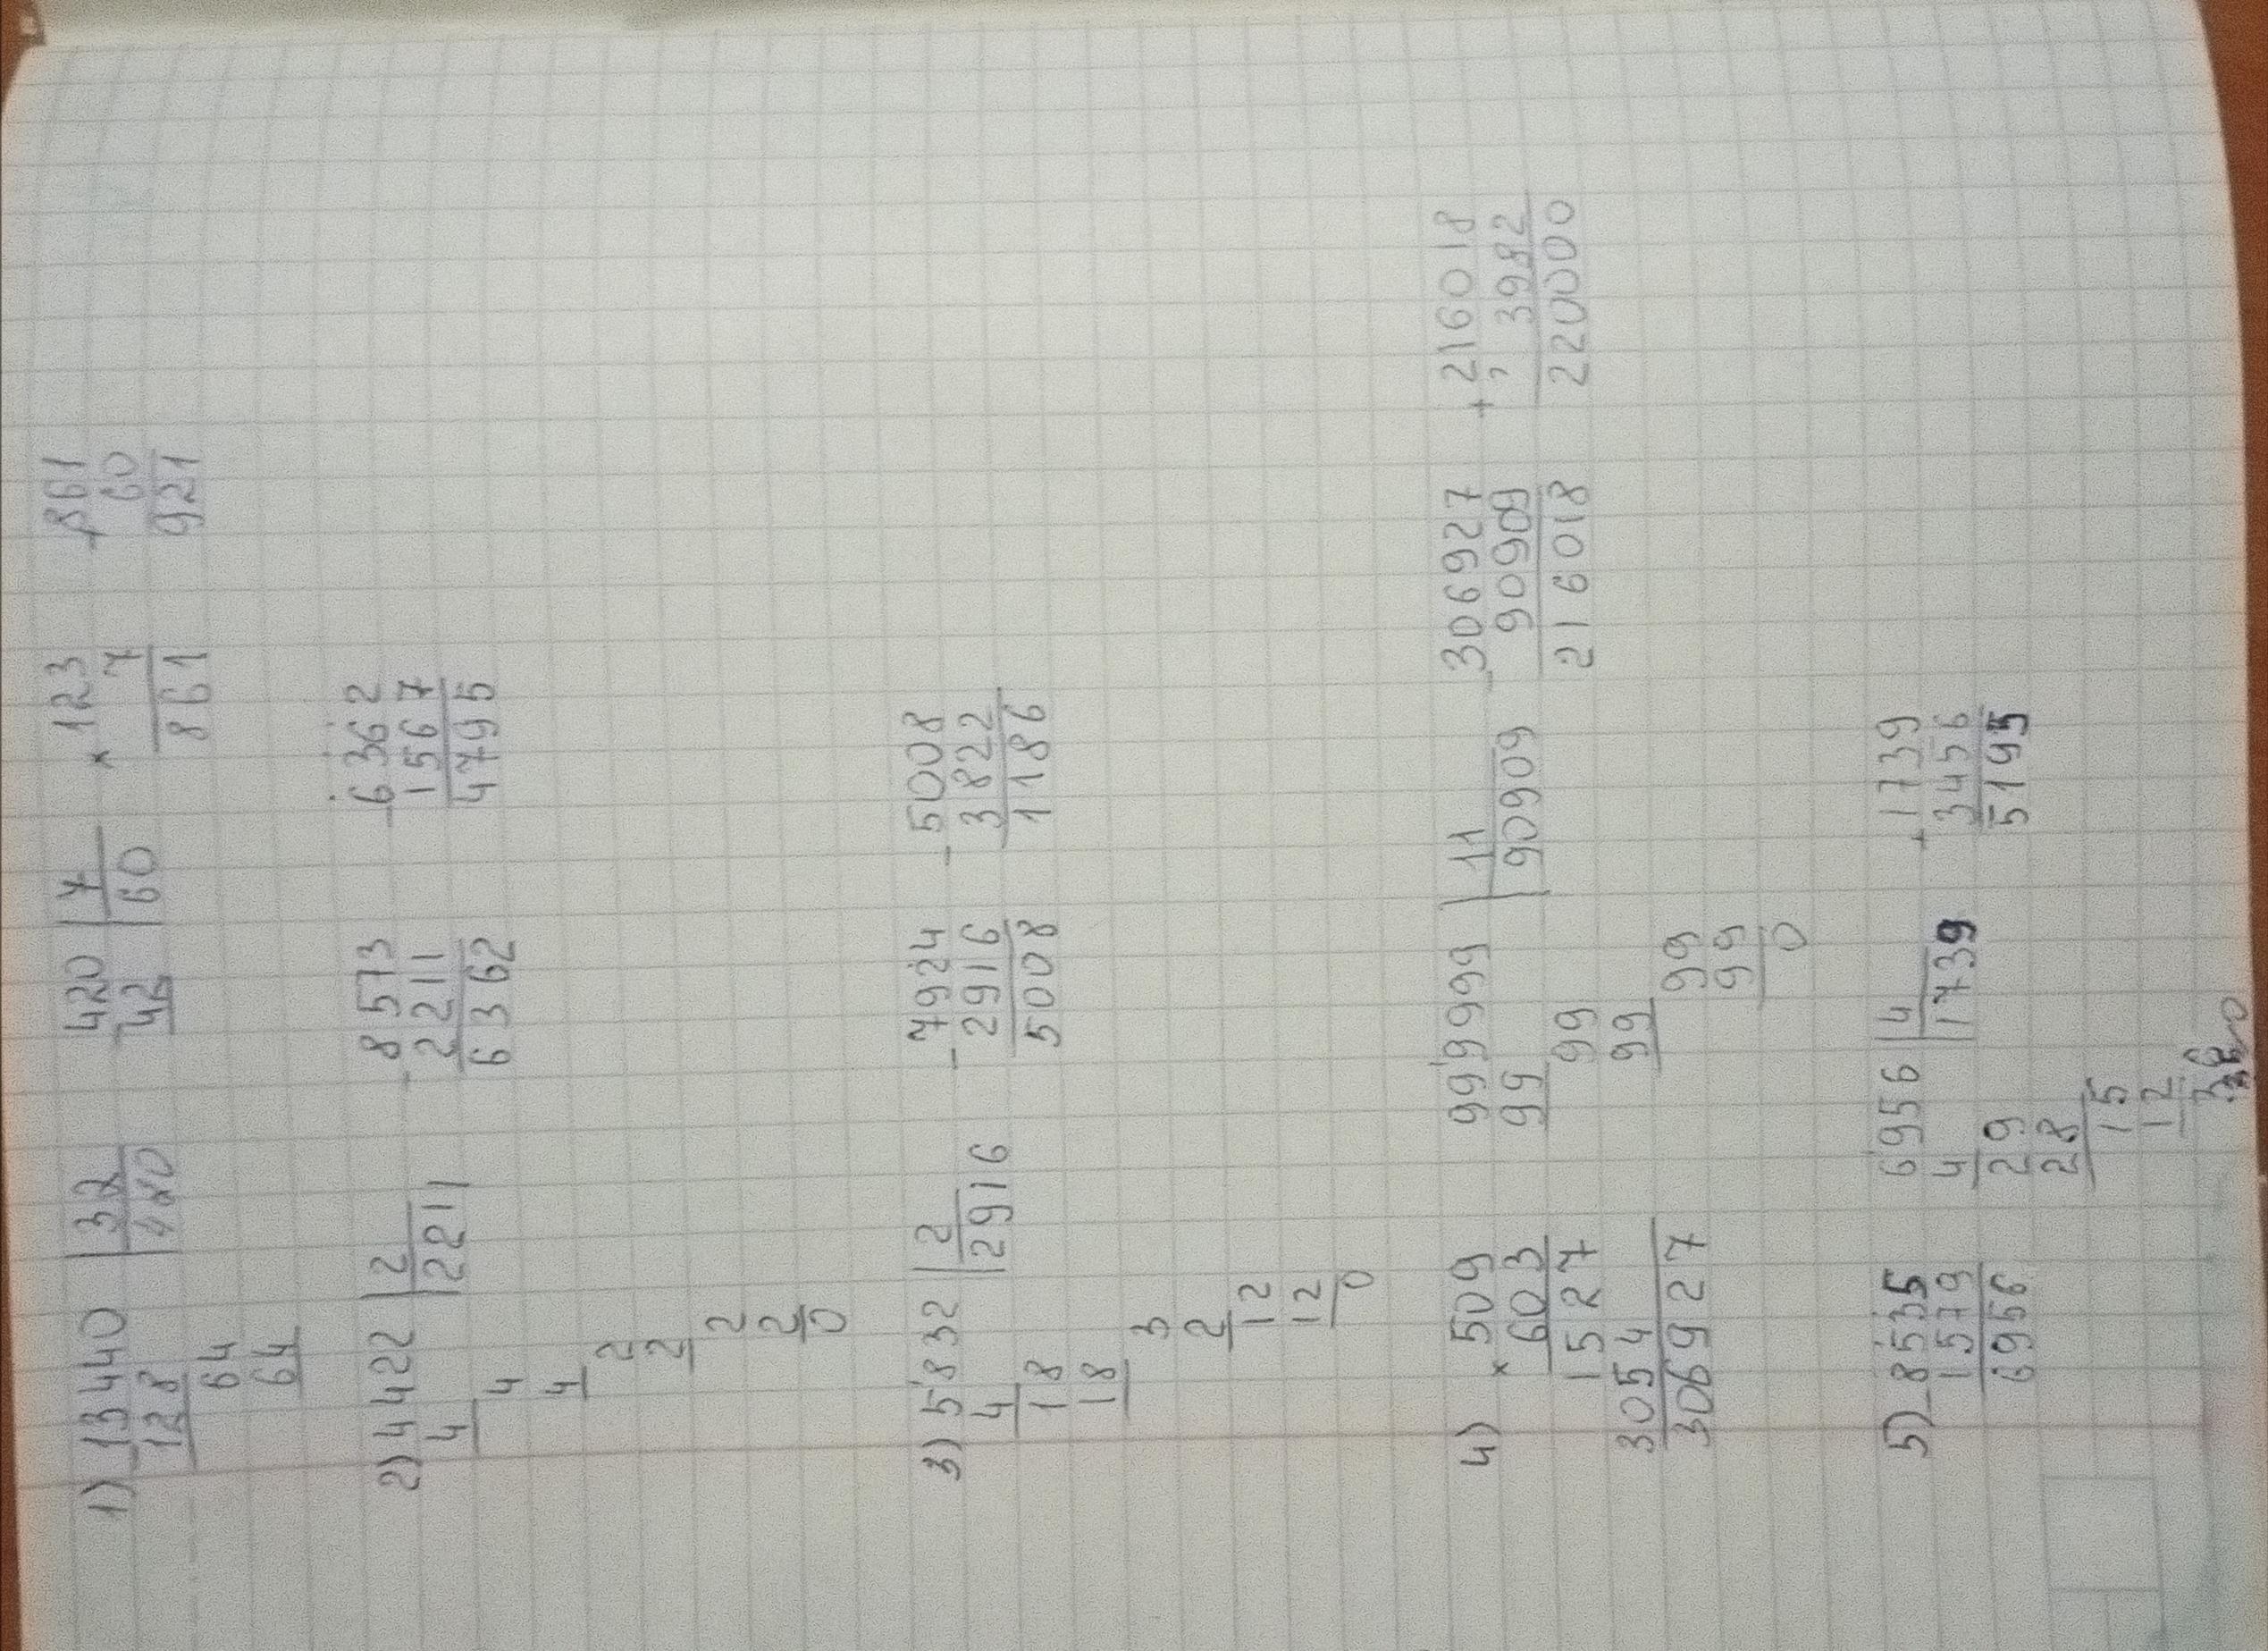 1) - 13440 | 32   - 420 | 7   × 123   + 861
128 | 420   42 | 60   7   60
64   861   921
64
2) 4422 | 2   - 8573   - 6362
4 | 2211   2211   1567
4   6362   4795
4
2
2
2
2
0
3) 5832 | 2   - 7924   - 5008
4 | 2916   2916   3822
18   5008   1186
18
3
2
12
12
0
4) × 509   999999 | 11   - 306927   + 216018
603   99 | 90909   90909   3982
1527   99   216018   220000
3054   99
306927   99
99
0
5) - 8535   6956 | 4   + 1739
1579   4 | 1739   3456
6956   29   5195
28
15
12
36
0